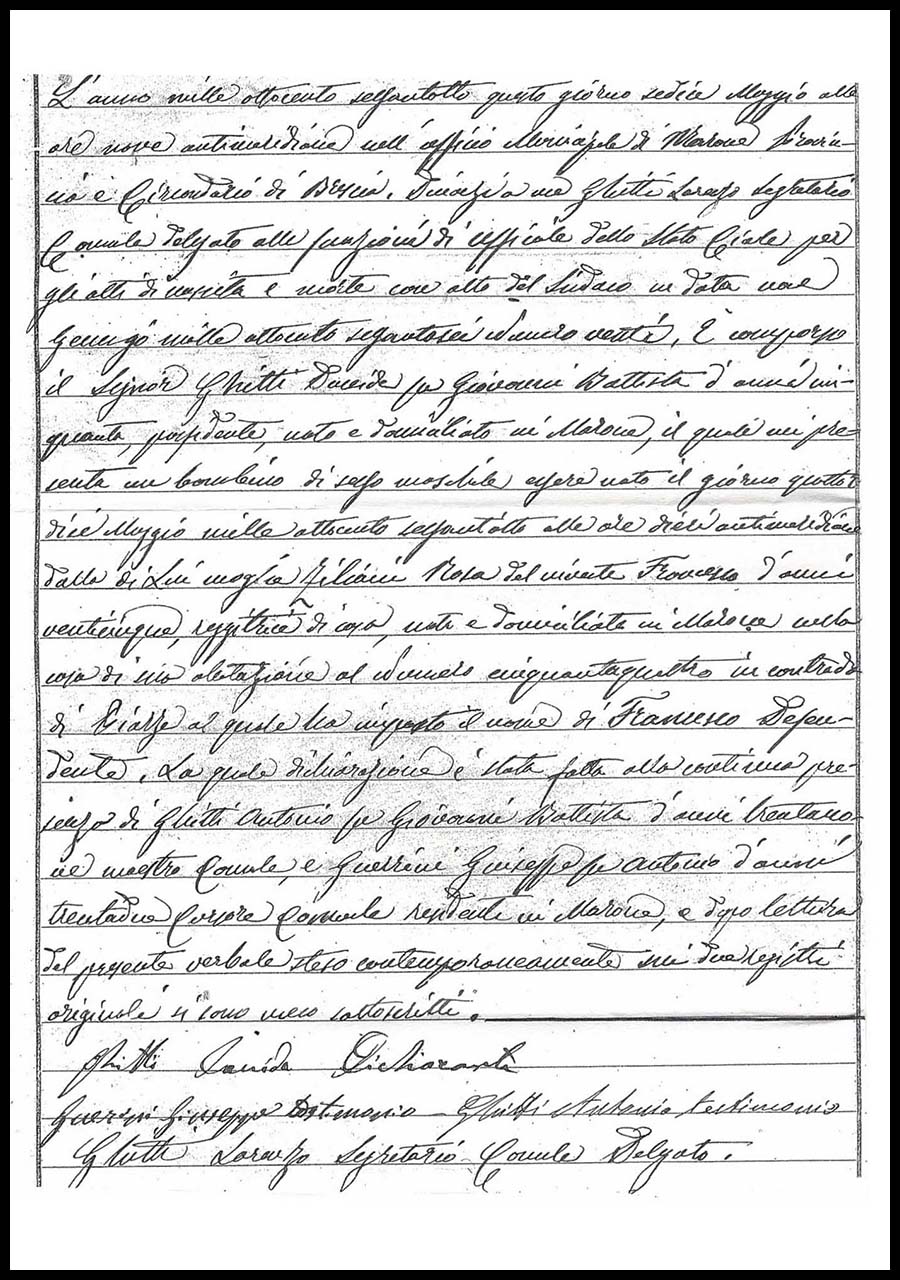 L'anno mille ottocento sessantotto questo giorno sedici Maggio alle
ore nove antimeridiane nell'ufficio Municipale di Marone Provin-
cia e Circondario di Brescia. Dinanzi a me Ghitti Lorenzo Segretario
Comunale delegato alle funzioni di ufficiale dello Stato Civile per
gli atti di nascita e morte con atto del Sindaco in data nove
Gennajo mille ottocento sessantasei Numero venti, È comparso
il Signor Ghitti Davide fu Giovanni Battista d'anni cin-
quanta, possidente, nato e domiciliato in Marone, il quale mi pre-
senta un bambino di sesso maschile essere nato il giorno quattor
dici Maggio mille ottocento sessantotto alle ore dieci antimeridiane
dalla di Lui moglie Ziliani Rosa del vivente Francesco d'anni
venticinque, reggitrice di casa, nata e domiciliata in Marone nella
casa di sua abitazione al Numero cinquantaquattro in contrada
di Piazze al quale ha imposto il nome di Francesco Defen-
dente. La quale dichiarazione è stata fatta alla continua pre-
senza di Ghitti Antonio fu Giovanni Battista d'anni trentano-
ve maestro Comunale, e Guerrini Giuseppe fu Antonio d'anni
trentadue Cursore Comunale residenti in Marone, e dopo lettura
del presente verbale steso contemporaneamente sui due registri
originali si sono meco sottoscritti.
Ghitti Davide Dichiarante
Guerrini Giuseppe testimonio Ghitti Antonio testimonio
Ghitti Lorenzo Segretario Comunale Delegato.